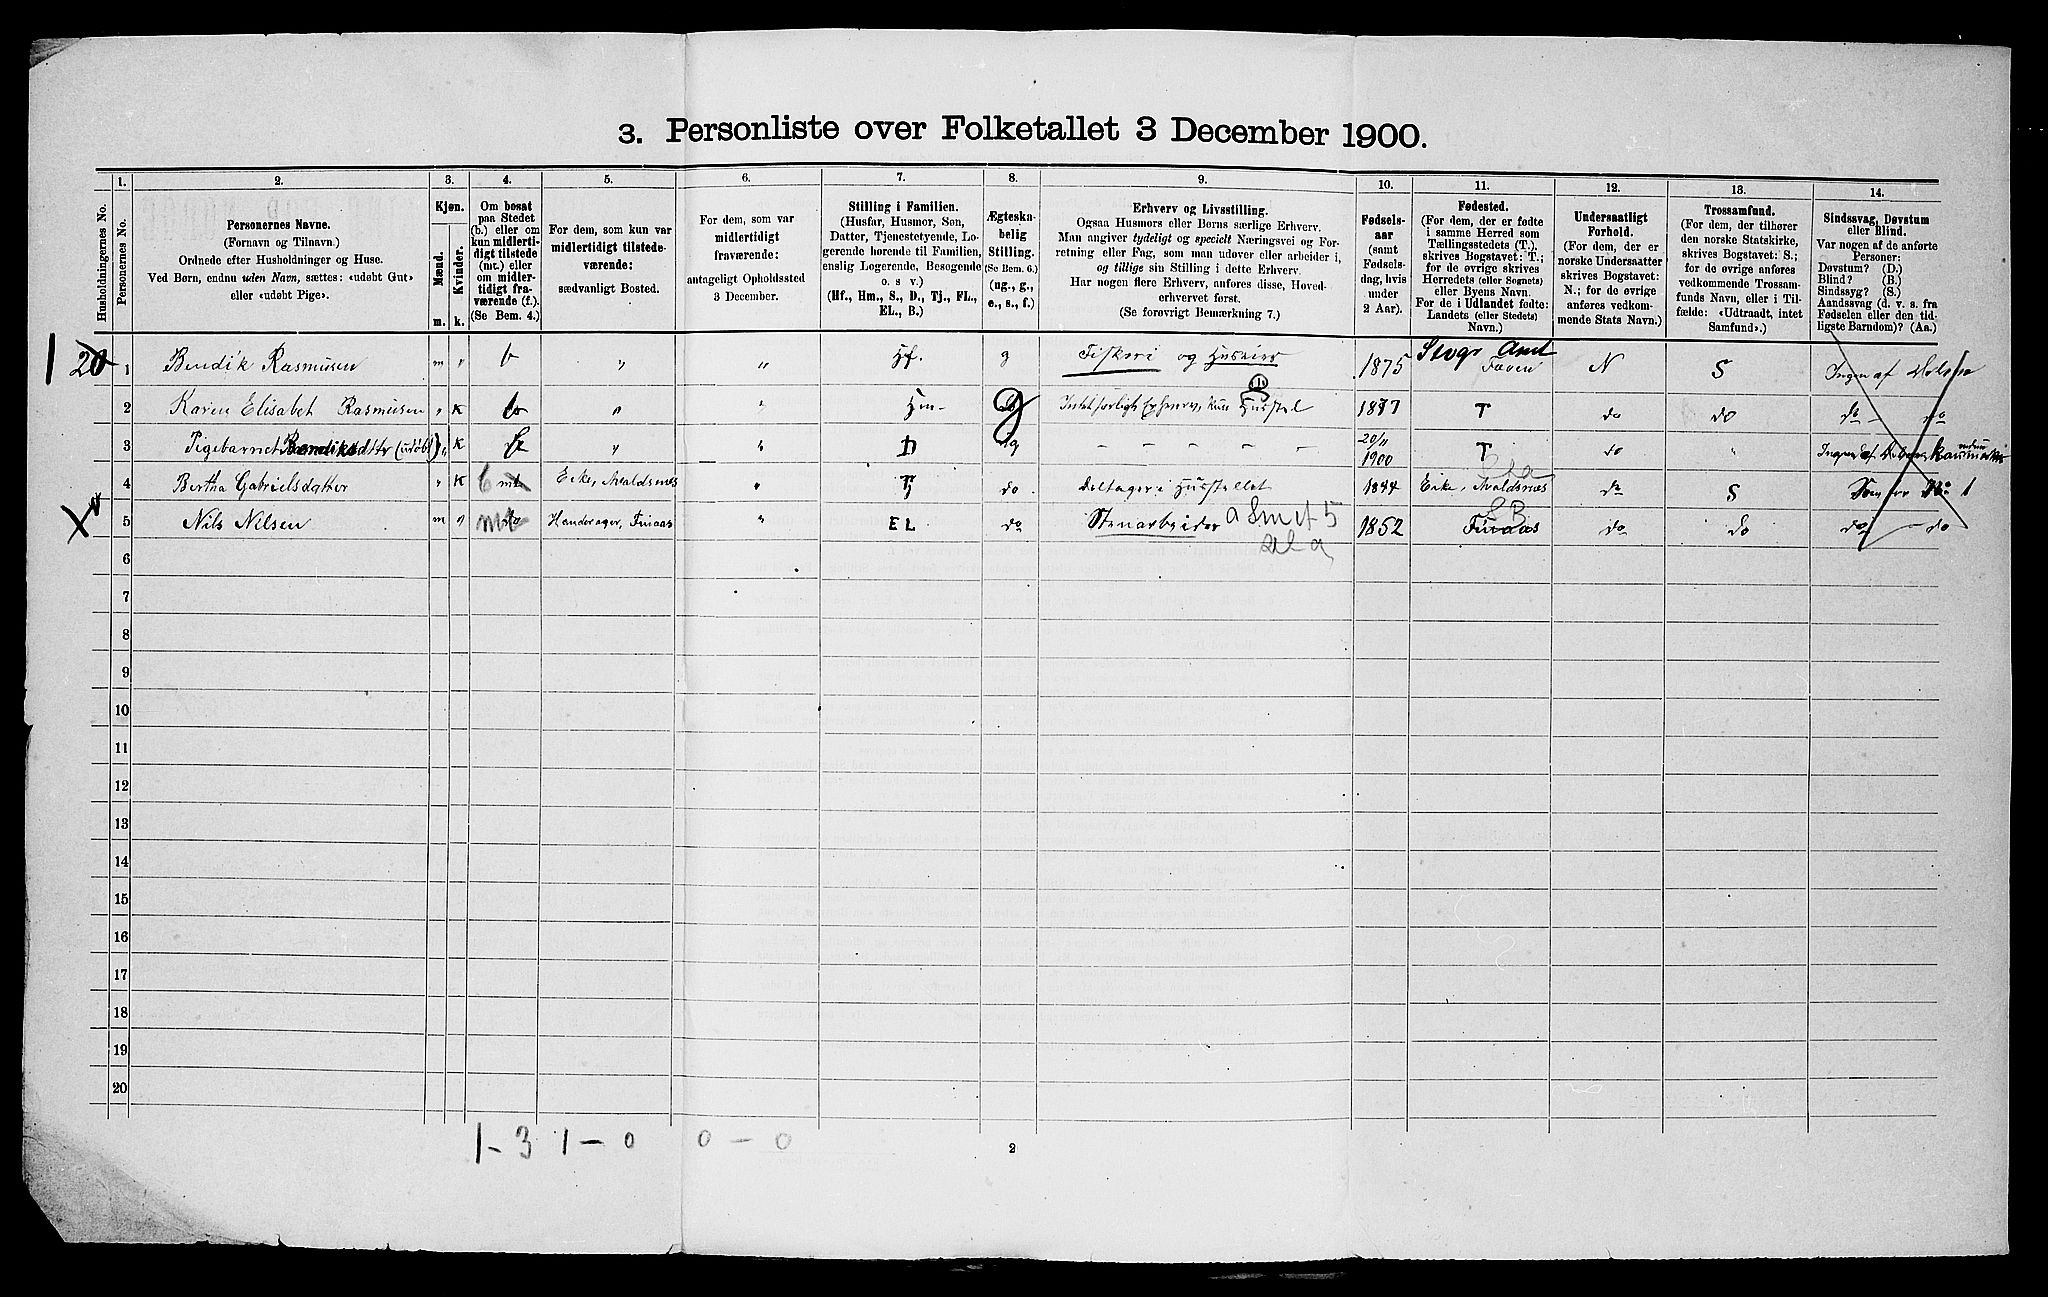 3. Personliste over Folketallet 3 December 1900.
Husholdningernes No.
1. Personernes No.
2. Personernes Navne.
(Fornavn og Tilnavn.)
Ordnede efter Husholdninger og Huse.
Ved Børn, endnu uden Navn, sættes: «udøbt Gut»
eller «udøbt Pige».
3. Kjøn.
Mænd. Kvinder.
m. k.
4. Om bosat
paa Stedet
(b.) eller om
kun midlerti-
digt tilstede
(mt.) eller
om midler-
tidigt fra-
værende (f.).
(Se Bem. 4.)
5. For dem, som kun var
midlertidigt tilstede-
værende:
sædvanligt Bosted.
6. For dem, som var
midlertidigt
fraværende:
antageligt Opholdssted
3 December.
7. Stilling i Familien.
(Husfar, Husmor, Søn,
Datter, Tjenestetyende, Lo-
gerende hørende til Familien,
enslig Logerende, Besøgende
o. s v.)
(Hf., Hm., S., D., Tj., FL.,
EL., B.)
8. Ægteska-
belig
Stilling.
(Se Bem. 6.)
(ug., g.,
e., s., f.)
9. Erhverv og Livsstilling.
Ogsaa Husmors eller Børns særlige Erhverv.
Man angiver tydeligt og specielt Næringsvei og For-
retning eller Fag, som man udøver eller arbeider i,
og tillige sin Stilling i dette Erhverv.
Har nogen flere Erhverv, anføres disse, Hoved-
erhvervet først.
(Se forøvrigt Bemærkning 7.)
10. Fødsels-
aar
(samt
Fødsels-
dag, hvis
under
2 Aar).
11. Fødested.
(For dem, der er fødte
i samme Herred som
Tællingsstedets (T.),
skrives Bogstavet: T.;
for de øvrige skrives
Herredets (eller Sognets)
eller Byens Navn.
For de i Udlandet fødte:
Landets (eller Stedets)
Navn.)
12. Undersaatligt
Forhold.
(For dem, der er
norske Undersaatter
skrives Bogstavet:
N.; for de øvrige
anføres vedkom-
mende Stats Navn.)
13. Trossamfund.
(For dem, der tilhører
den norske Statskirke,
skrives Bogstavet: S.;
for de øvrige anføres
vedkommende Trossam-
funds Navn, eller i Til-
fælde: «Udtraadt, intet
Samfund».)
14. Sindssvag, Døvstum
eller Blind.
Var nogen af de anførte
Personer:
Døvstum? (D.)
Blind? (B.)
Sindssyg? (S.)
Aandssvag (d. v. s. fra
Fødselen eller den tid-
ligste Barndom)? (Aa.)
1 20 1 Bendik Rasmusen m " b " " Hf. g Fiskeri og Huseier 1875 Stvgr Amt Føven N S Ingen af
2 Karen Elisabet Rasmusen " K b " " Hm g Intet særligt Erhverv, kun Husstel 1877 T do do do - do
3 Pigebarnet Bendiksdttr (udøbt) " K b " " D ug - - - - - 20/11 1900 T do " Ingen af
4 Bertha Gabrielsdatter " K b mt Eike, Avaldsnes " Tj do Deltager i Husstellet 1844 Eike, Avaldsnes do S Som for No 1
5 Nils Nilsen m " mt do Handeager, Finaas " EL do Stenarbeider 1852 SB Finaas do do do - do
6
7
8
9
10
11
12
13
14
15
16
17
18
19
20
1 - 3 1 - 0 0 - 0
2